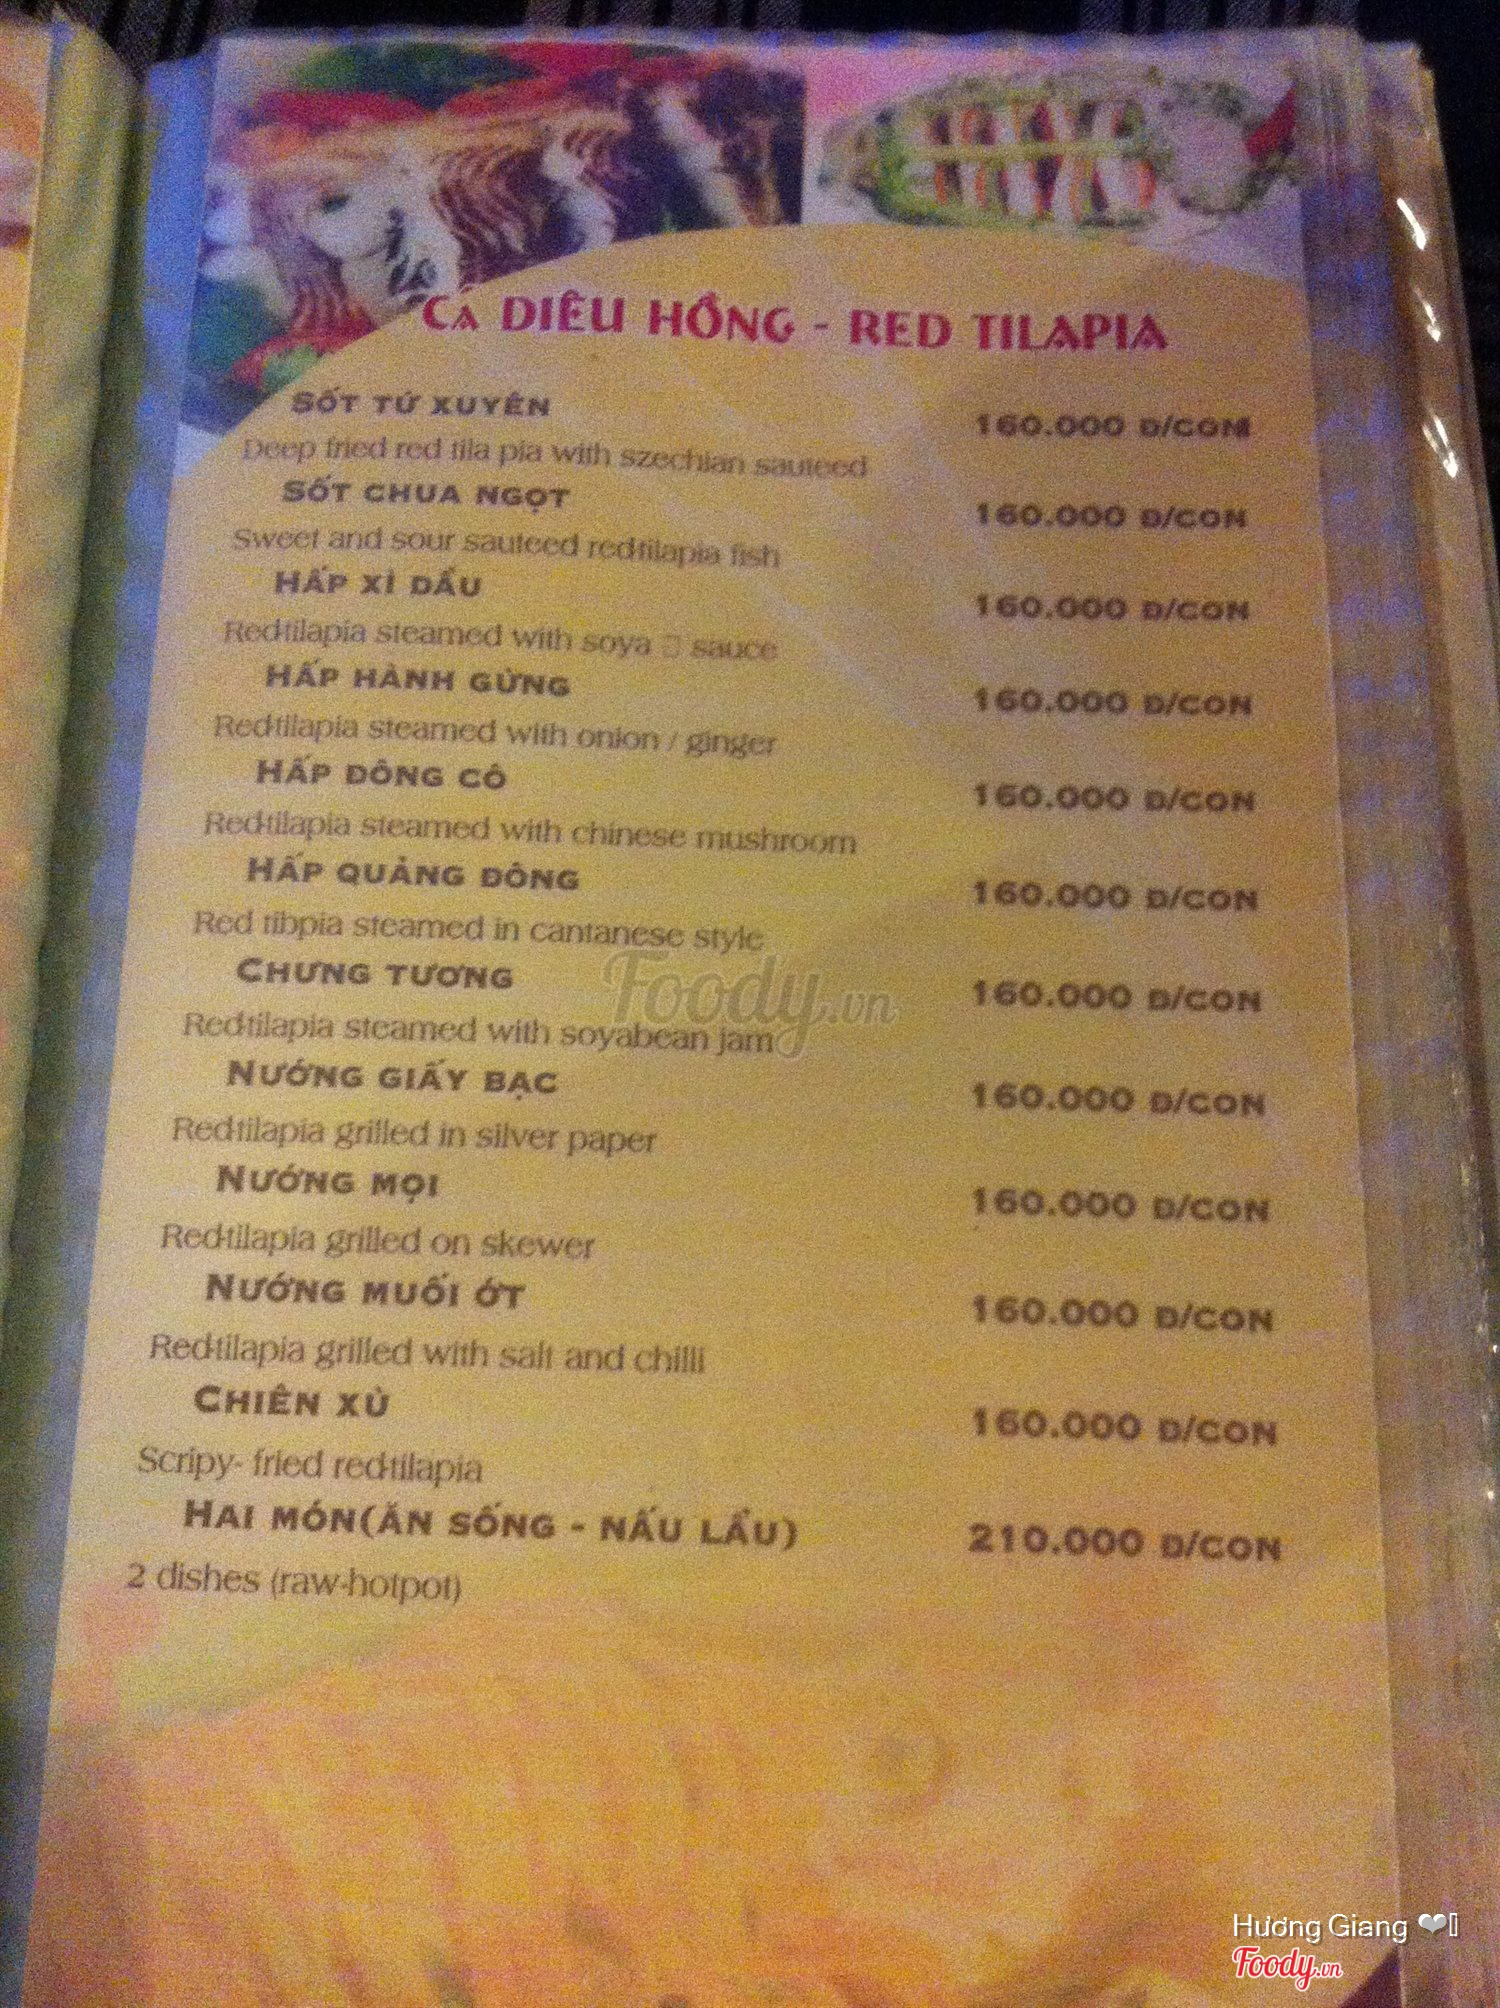 Cá DIÊU HỒNG - RED TILAPIA
SỐT TỨ XUYÊN 160.000 Đ/CON
Deep fried red tila pia with szechian sauteed
SỐT CHUA NGỌT 160.000 Đ/CON
Sweet and sour sauteed redtilapia fish
HẤP XÌ DẦU 160.000 Đ/CON
Redtilapia steamed with soya sauce
HẤP HÀNH GỪNG 160.000 Đ/CON
Redtilapia steamed with onion / ginger
HẤP ĐÔNG CÔ 160.000 Đ/CON
Redtilapia steamed with chinese mushroom
HẤP QUẢNG ĐÔNG 160.000 Đ/CON
Red tibpia steamed in cantanese style
CHƯNG TƯƠNG 160.000 Đ/CON
Redtilapia steamed with soyabean jam
NƯỚNG GIẤY BẠC 160.000 Đ/CON
Redtilapia grilled in silver paper
NƯỚNG MỌI 160.000 Đ/CON
Redtilapia grilled on skewer
NƯỚNG MUỐI ỚT 160.000 Đ/CON
Redtilapia grilled with salt and chilli
CHIÊN XÙ 160.000 Đ/CON
Scripy- fried redtilapia
HAI MÓN(ĂN SỐNG - NẤU LẨU) 210.000 Đ/CON
2 dishes (raw-hotpot)
Foody.vn
Hương Giang ❤
Foody.vn